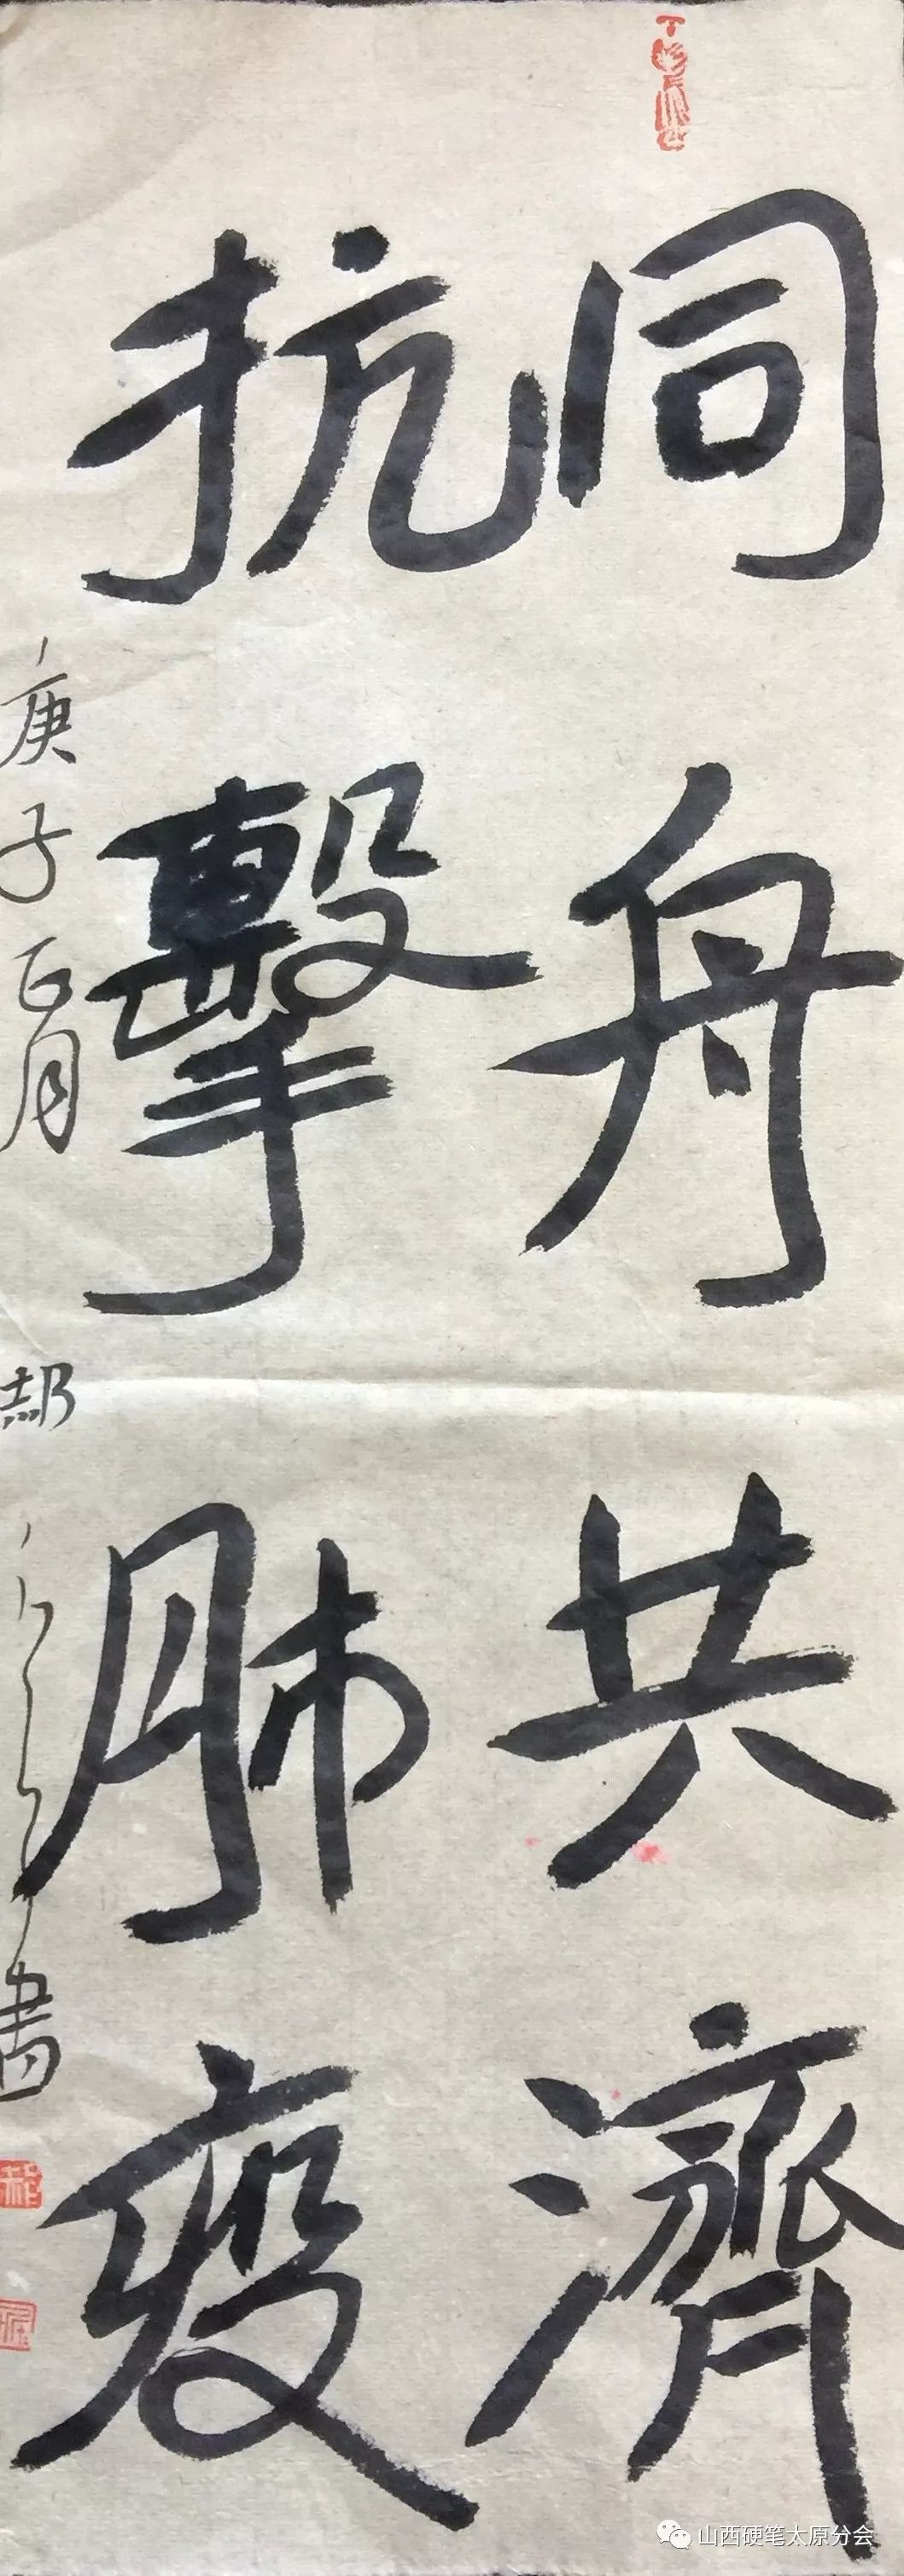 同舟共濟
抗擊肺疫
庚子正月 郝 書
山西硬笔太原分会